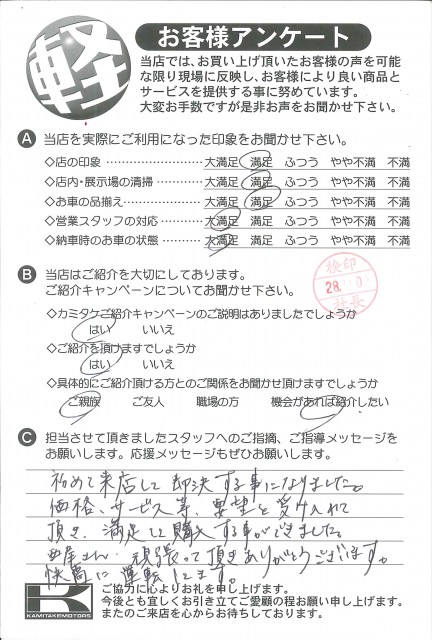 軽
お客様アンケート
当店では、お買い上げ頂いたお客様の声を可能
な限り現場に反映し、お客様により良い商品と
サービスを提供する事に努めています。
大変お手数ですが是非お声をお聞かせ下さい。
A 当店を実際にご利用になった印象をお聞かせ下さい。
◇店の印象 …………………… 大満足 満足 ふつう やや不満 不満
◇店内・展示場の清掃 ………… 大満足 満足 ふつう やや不満 不満
◇お車の品揃え ……………… 大満足 満足 ふつう やや不満 不満
◇営業スタッフの対応 ………… 大満足 満足 ふつう やや不満 不満
◇納車時のお車の状態 ……… 大満足 満足 ふつう やや不満 不満
B 当店はご紹介を大切にしております。
ご紹介キャンペーンについてお聞かせ下さい。
検印
28.
社長
◇カミタケご紹介キャンペーンのご説明はありましたでしょうか
はい いいえ
◇ご紹介を頂けますでしょうか
はい いいえ
◇具体的にご紹介頂ける方とのご関係をお聞かせ頂けますでしょうか
ご親族 ご友人 職場の方 機会があれば紹介したい
C 担当させて頂きましたスタッフへのご指摘、ご指導メッセージを
お願いします。応援メッセージもぜひお願いします。
初めて来店して却決する事になりました。
価格、サービス等、要望を受け入れて
頂き、満足して購入する事ができました。
西尾さん、頑張って頂きありがとうございます。
快適に運転してます。
K
KAMITAKEMOTORS
ご協力に心よりお礼を申し上げます。
今後とも宜しくお引き立てご愛顧の程お願い申し上げます。
またのご来店を心からお待ちしております。